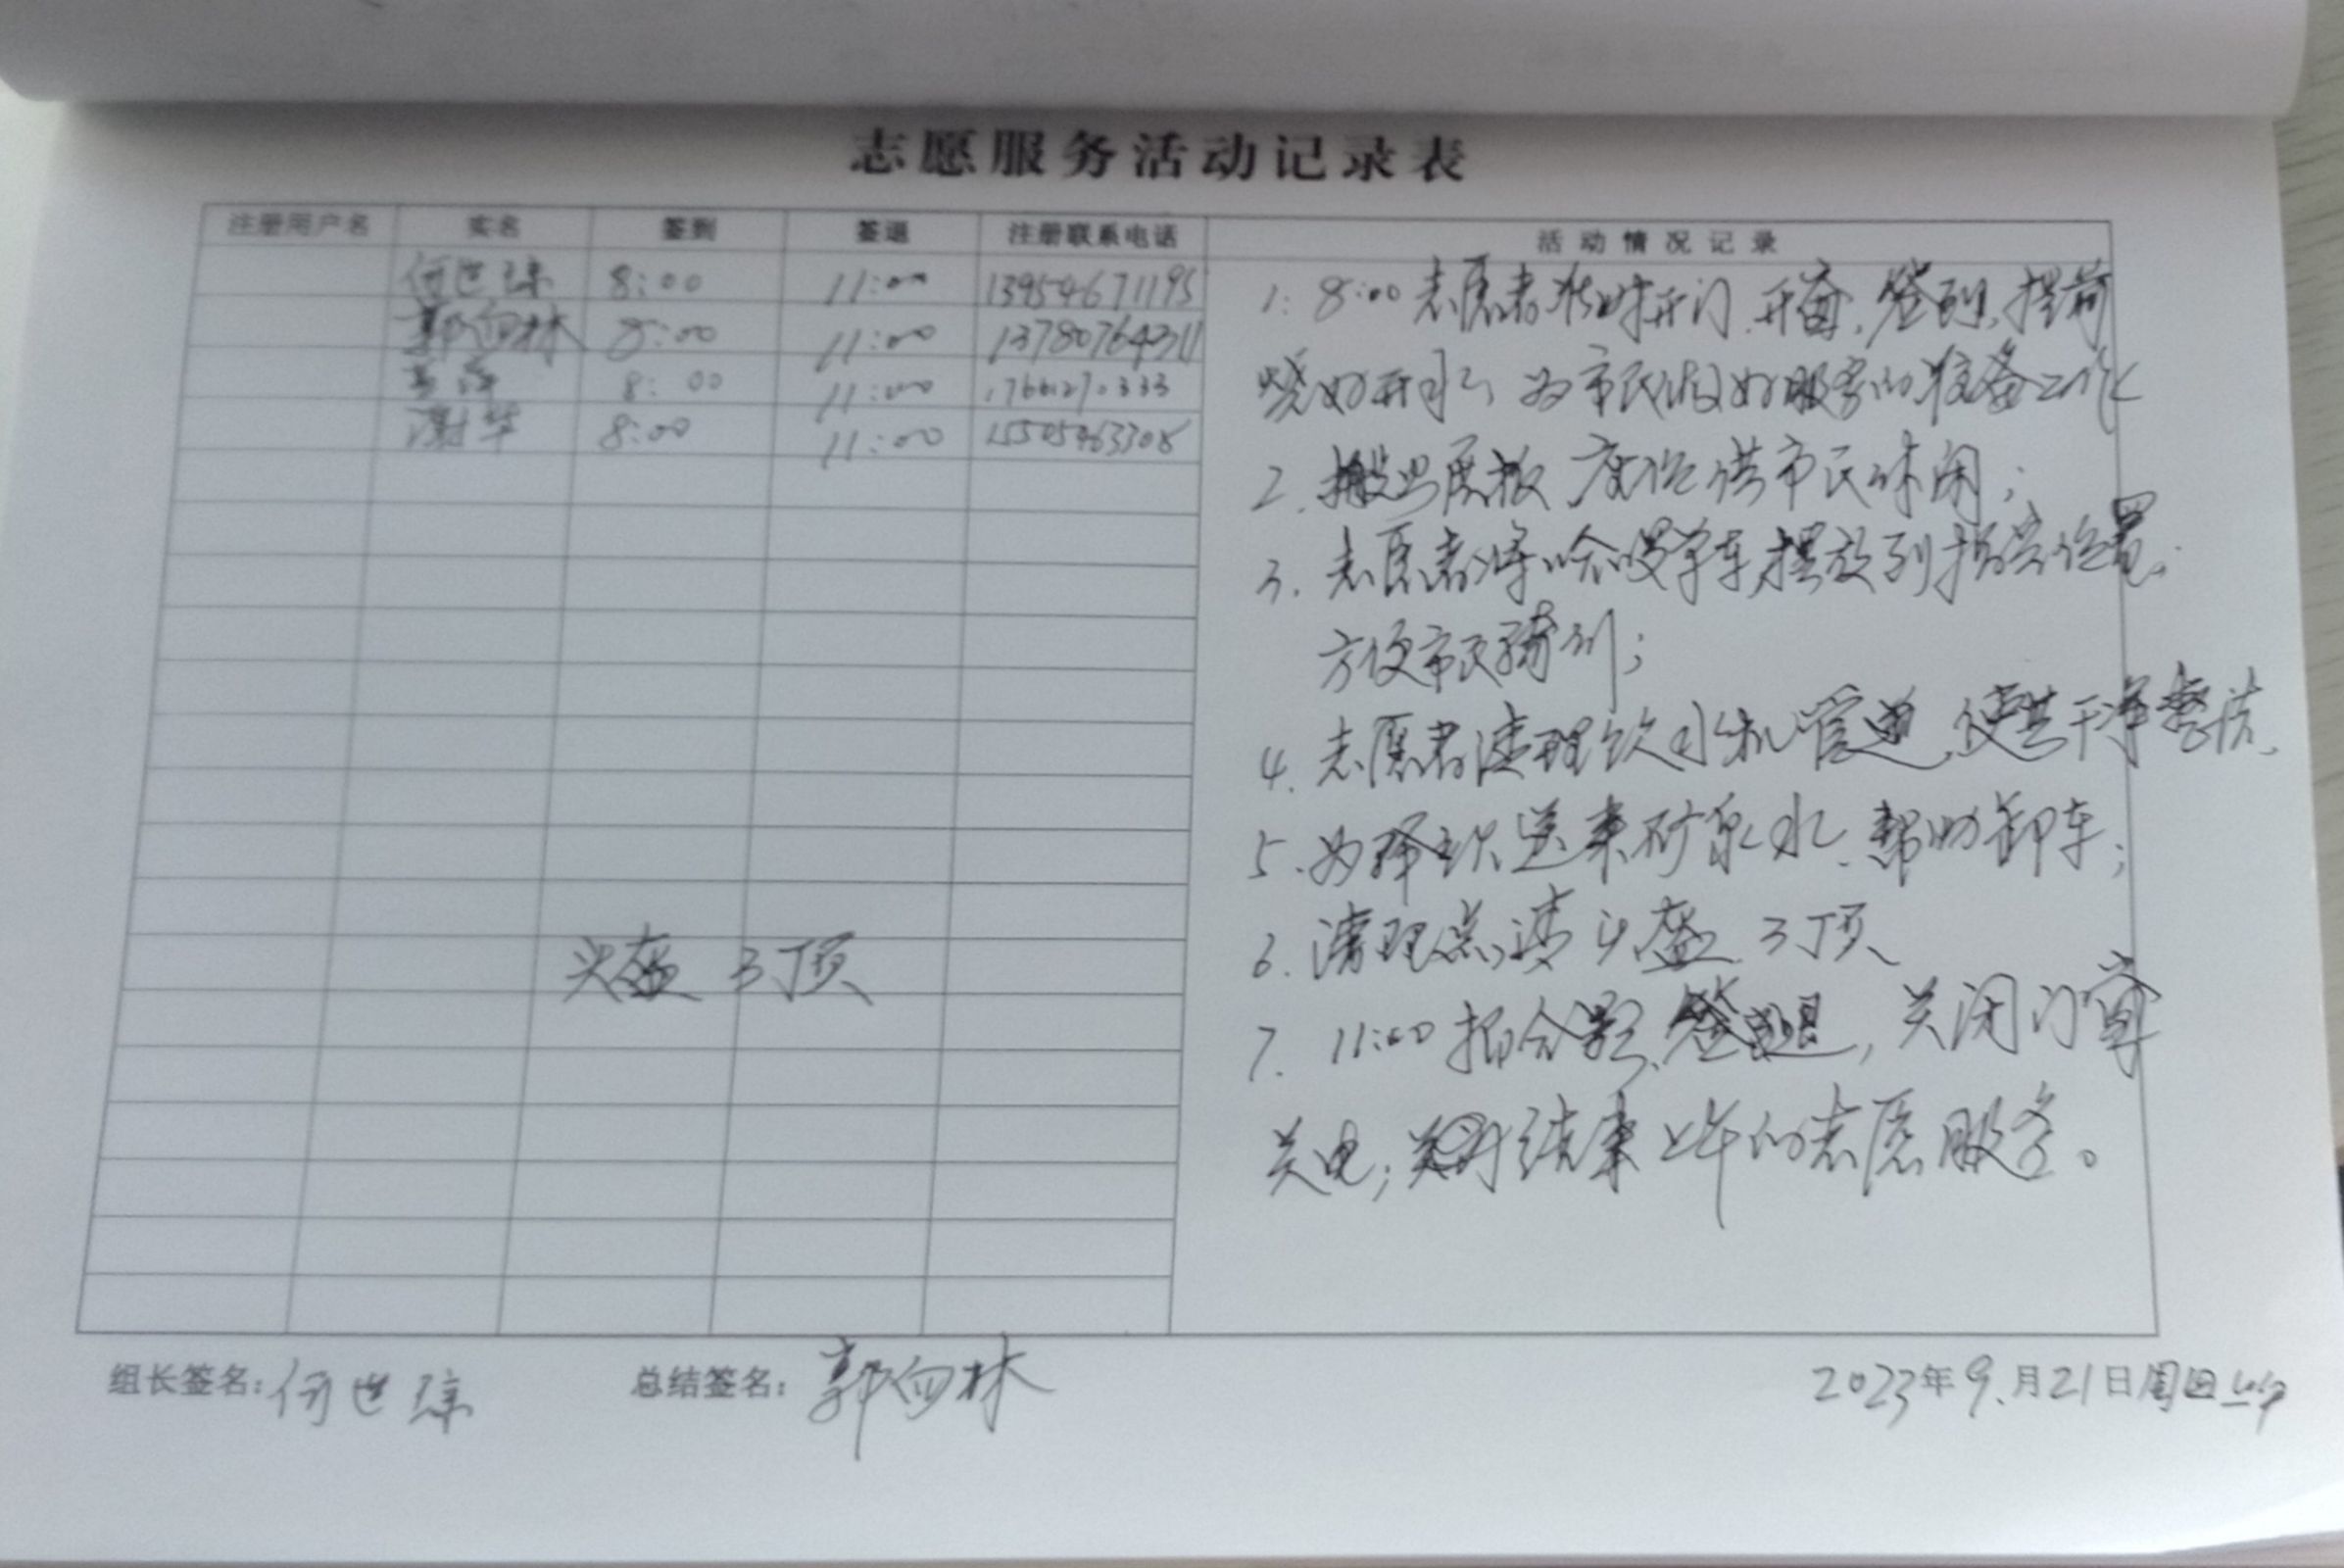 志愿服务活动记录表
注册用户名 实名 签到 签退 注册联系电话 活动情况记录
何世琼 8:00 11:00 13954671195
郭向林 8:00 11:00 13780764311
8:00 11:00
谢华 8:00 11:00 15505463308
头盔 3顶
1: 8:00 志愿者准时开门、开窗、签到、提前
烧好开水,为市民做好服务的准备工作
2. 搬出展板 座位供市民休闲;
3. 志愿者将哈啰单车摆放到指定位置,
方便市民骑行;
4. 志愿者清理饮水机管道,使其干净整洁、
5. 为 送来矿泉水、帮助卸车;
6. 清理 头盔 3顶
7. 11:00 拍合影、签退,关闭门窗
关电; 结束上午的志愿服务。
组长签名:何世琼 总结签名:郭向林 2023年9.月21日周四上午